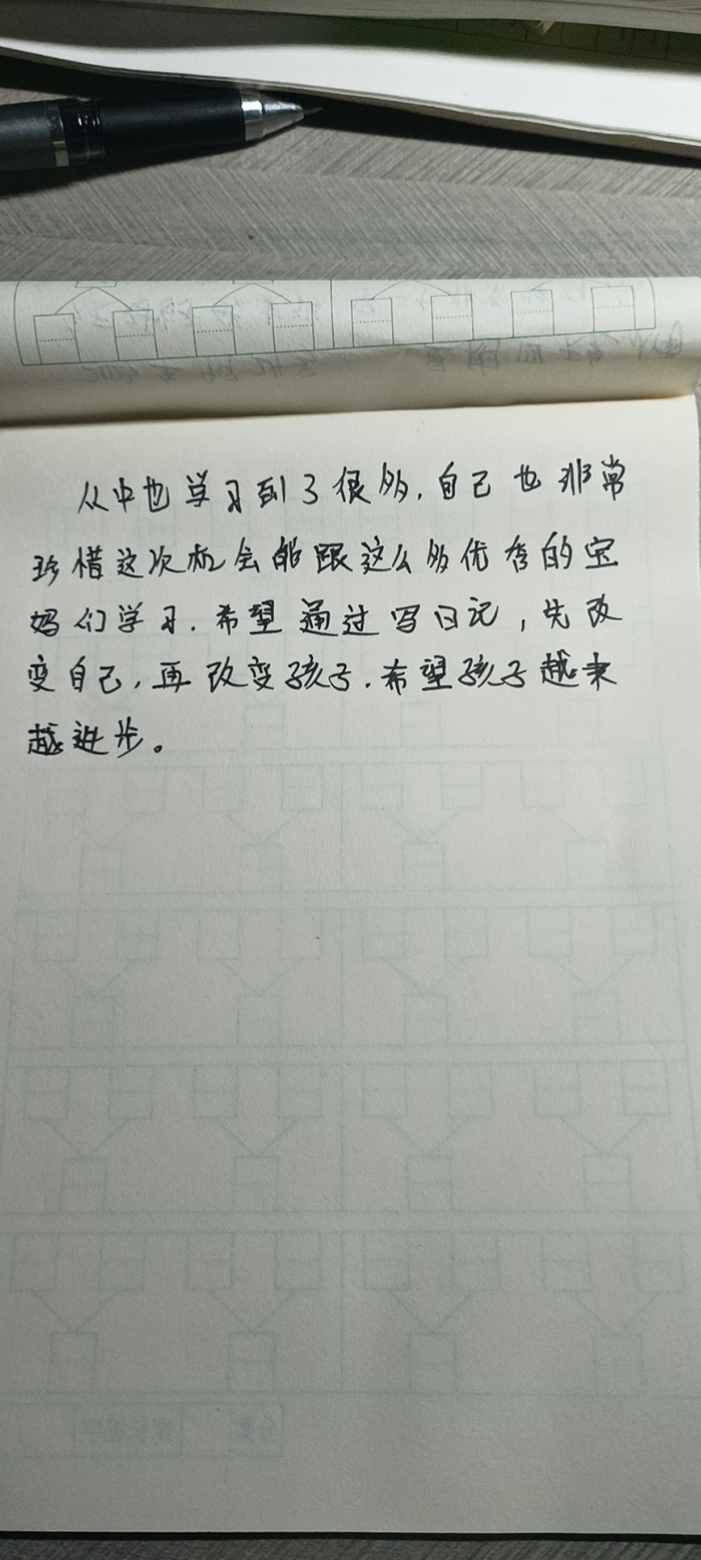 从中也学习到了很多,自己也非常
珍惜这次机会能跟这么多优秀的宝
妈们学习.希望通过写日记,先改
变自己,再改变孩子.希望孩子越来
越进步。